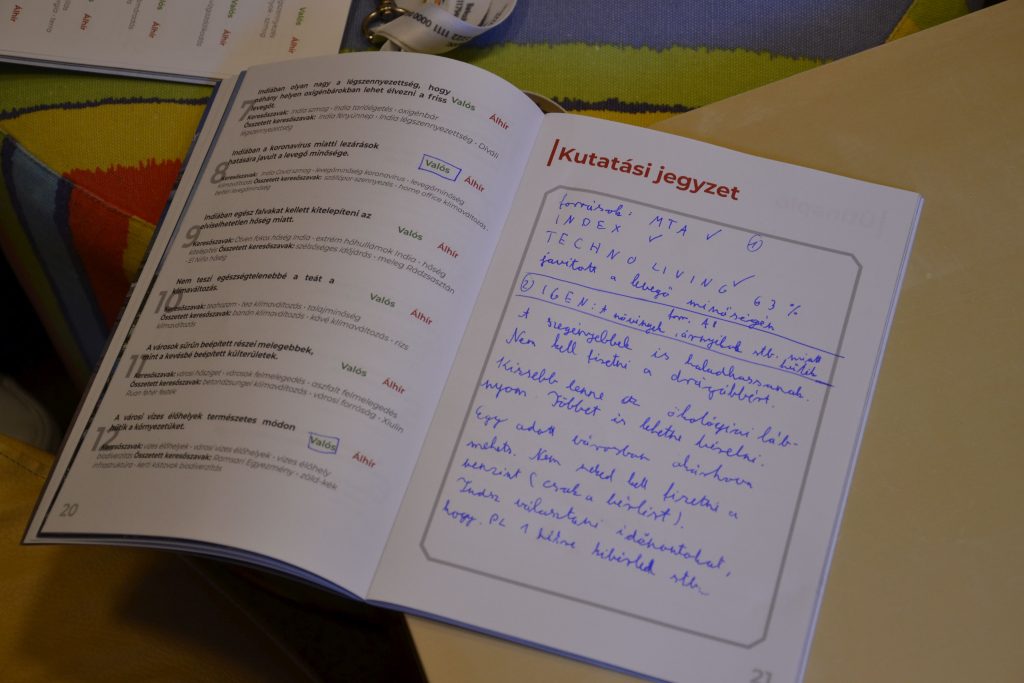 Valós
Álhír
Álhír
Valós
Álhír
0000 1111 2222
7
Indiában olyan nagy a légszennyezettség, hogy
néhány helyen oxigénbárokban lehet élvezni a friss
levegőt.
Valós
Álhír
Keresőszavak: india szmog - india tarlóégetés - oxigénbár
Összetett keresőszavak: india fényünnep - india légszennyezettség - Diváli
légszennyezettség
8
Indiában a koronavírus miatti lezárások
hatására javult a levegő minősége.
Valós
Álhír
Keresőszavak: india covid szmog - levegőminőség koronavírus - levegőminőség
klímaváltozás Összetett keresőszavak: szállópor szennyezés - home office klímaváltozás -
beltéri levegőminőség
9
Indiában egész falvakat kellett kitelepíteni az
elviselhetetlen hőség miatt.
Valós
Álhír
Keresőszavak: Ötven fokos hőség India - extrém hőhullámok India - hőség
kitelepítés Összetett keresőszavak: szélsőséges időjárás - meleg Rádzsasztán
- El Niño hőség
10
Nem teszi egészségtelenebbé a teát a
klímaváltozás.
Valós
Álhír
Keresőszavak: teahozam - tea klímaváltozás - talajminőség
Összetett keresőszavak: banán klímaváltozás - kávé klímaváltozás - rizs
klímaváltozás
11
A városok sűrűn beépített részei melegebbek,
mint a kevésbé beépített külterületek.
Valós
Álhír
Keresőszavak: városi hősziget - városok felmelegedés - aszfalt felmelegedés
Összetett keresőszavak: betondzsungel klímaváltozás - városi forróság - Xiulin
Ruan fehér festék
12
A városi vizes élőhelyek természetes módon
hűtik a környezetüket.
Valós
Álhír
Keresőszavak: vizes élőhelyek - városi vizes élőhelyek - vizes élőhely
biodiverzitás Összetett keresőszavak: Ramsari Egyezmény - zöld-kék
infrastruktúra - kerti kártavak biodiverzitás
20
Kutatási jegyzet
források: MTA ✓ ①
INDEX ✓
TECHNO LIVING ✓ 63 %
javított a levegő minőségén
② IGEN: A növények, árnyékok stb. miatt
hűtik
A szegényebbek is haladhassanak.
Nem kell fizetni a drágábbért.
Kissebb lenne az ökológiai láb-
nyom. Többet is lehetne bérelni.
Egy adott városban akárhova
mehetsz. Nem neked kell fizetni a
benzint (csak a bérlést).
Tudsz választani időpontokat,
hogy pl 1 hétre kibérled stb.
21